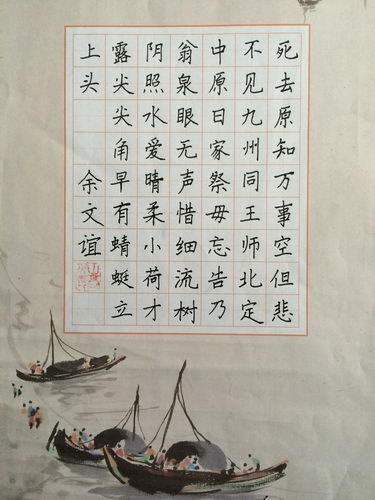 死去原知万事空但悲
不见九州同王师北定
中原日家祭毋忘告乃
翁泉眼无声惜细流树
阴照水爱晴柔小荷才
露尖尖角早有蜻蜓立
上头 余文谊